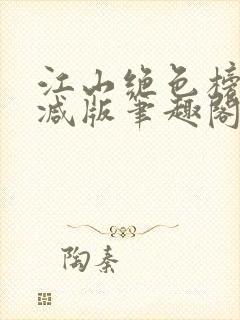 江山绝色榜
减版笔趣阁
陶秦